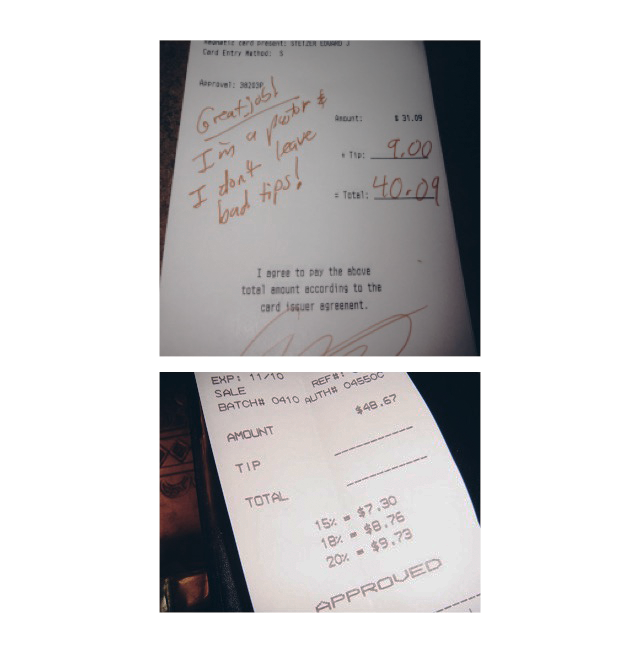 Automatic card present: STETZER EDWARD J
Card Entry Method: S
Approval: 38203P
Great job!
I'm a pastor &
I don't leave
bad tips!
Amount: $ 31.09
+ Tip: 9.00
= Total: 40.09
I agree to pay the above
total amount according to the
card issuer agreement.
EXP: 11/10 REF#:
SALE
BATCH# 0410 AUTH# 04550C
AMOUNT $48.67
TIP
TOTAL
15% = $7.30
18% = $8.76
20% = $9.73
APPROVED